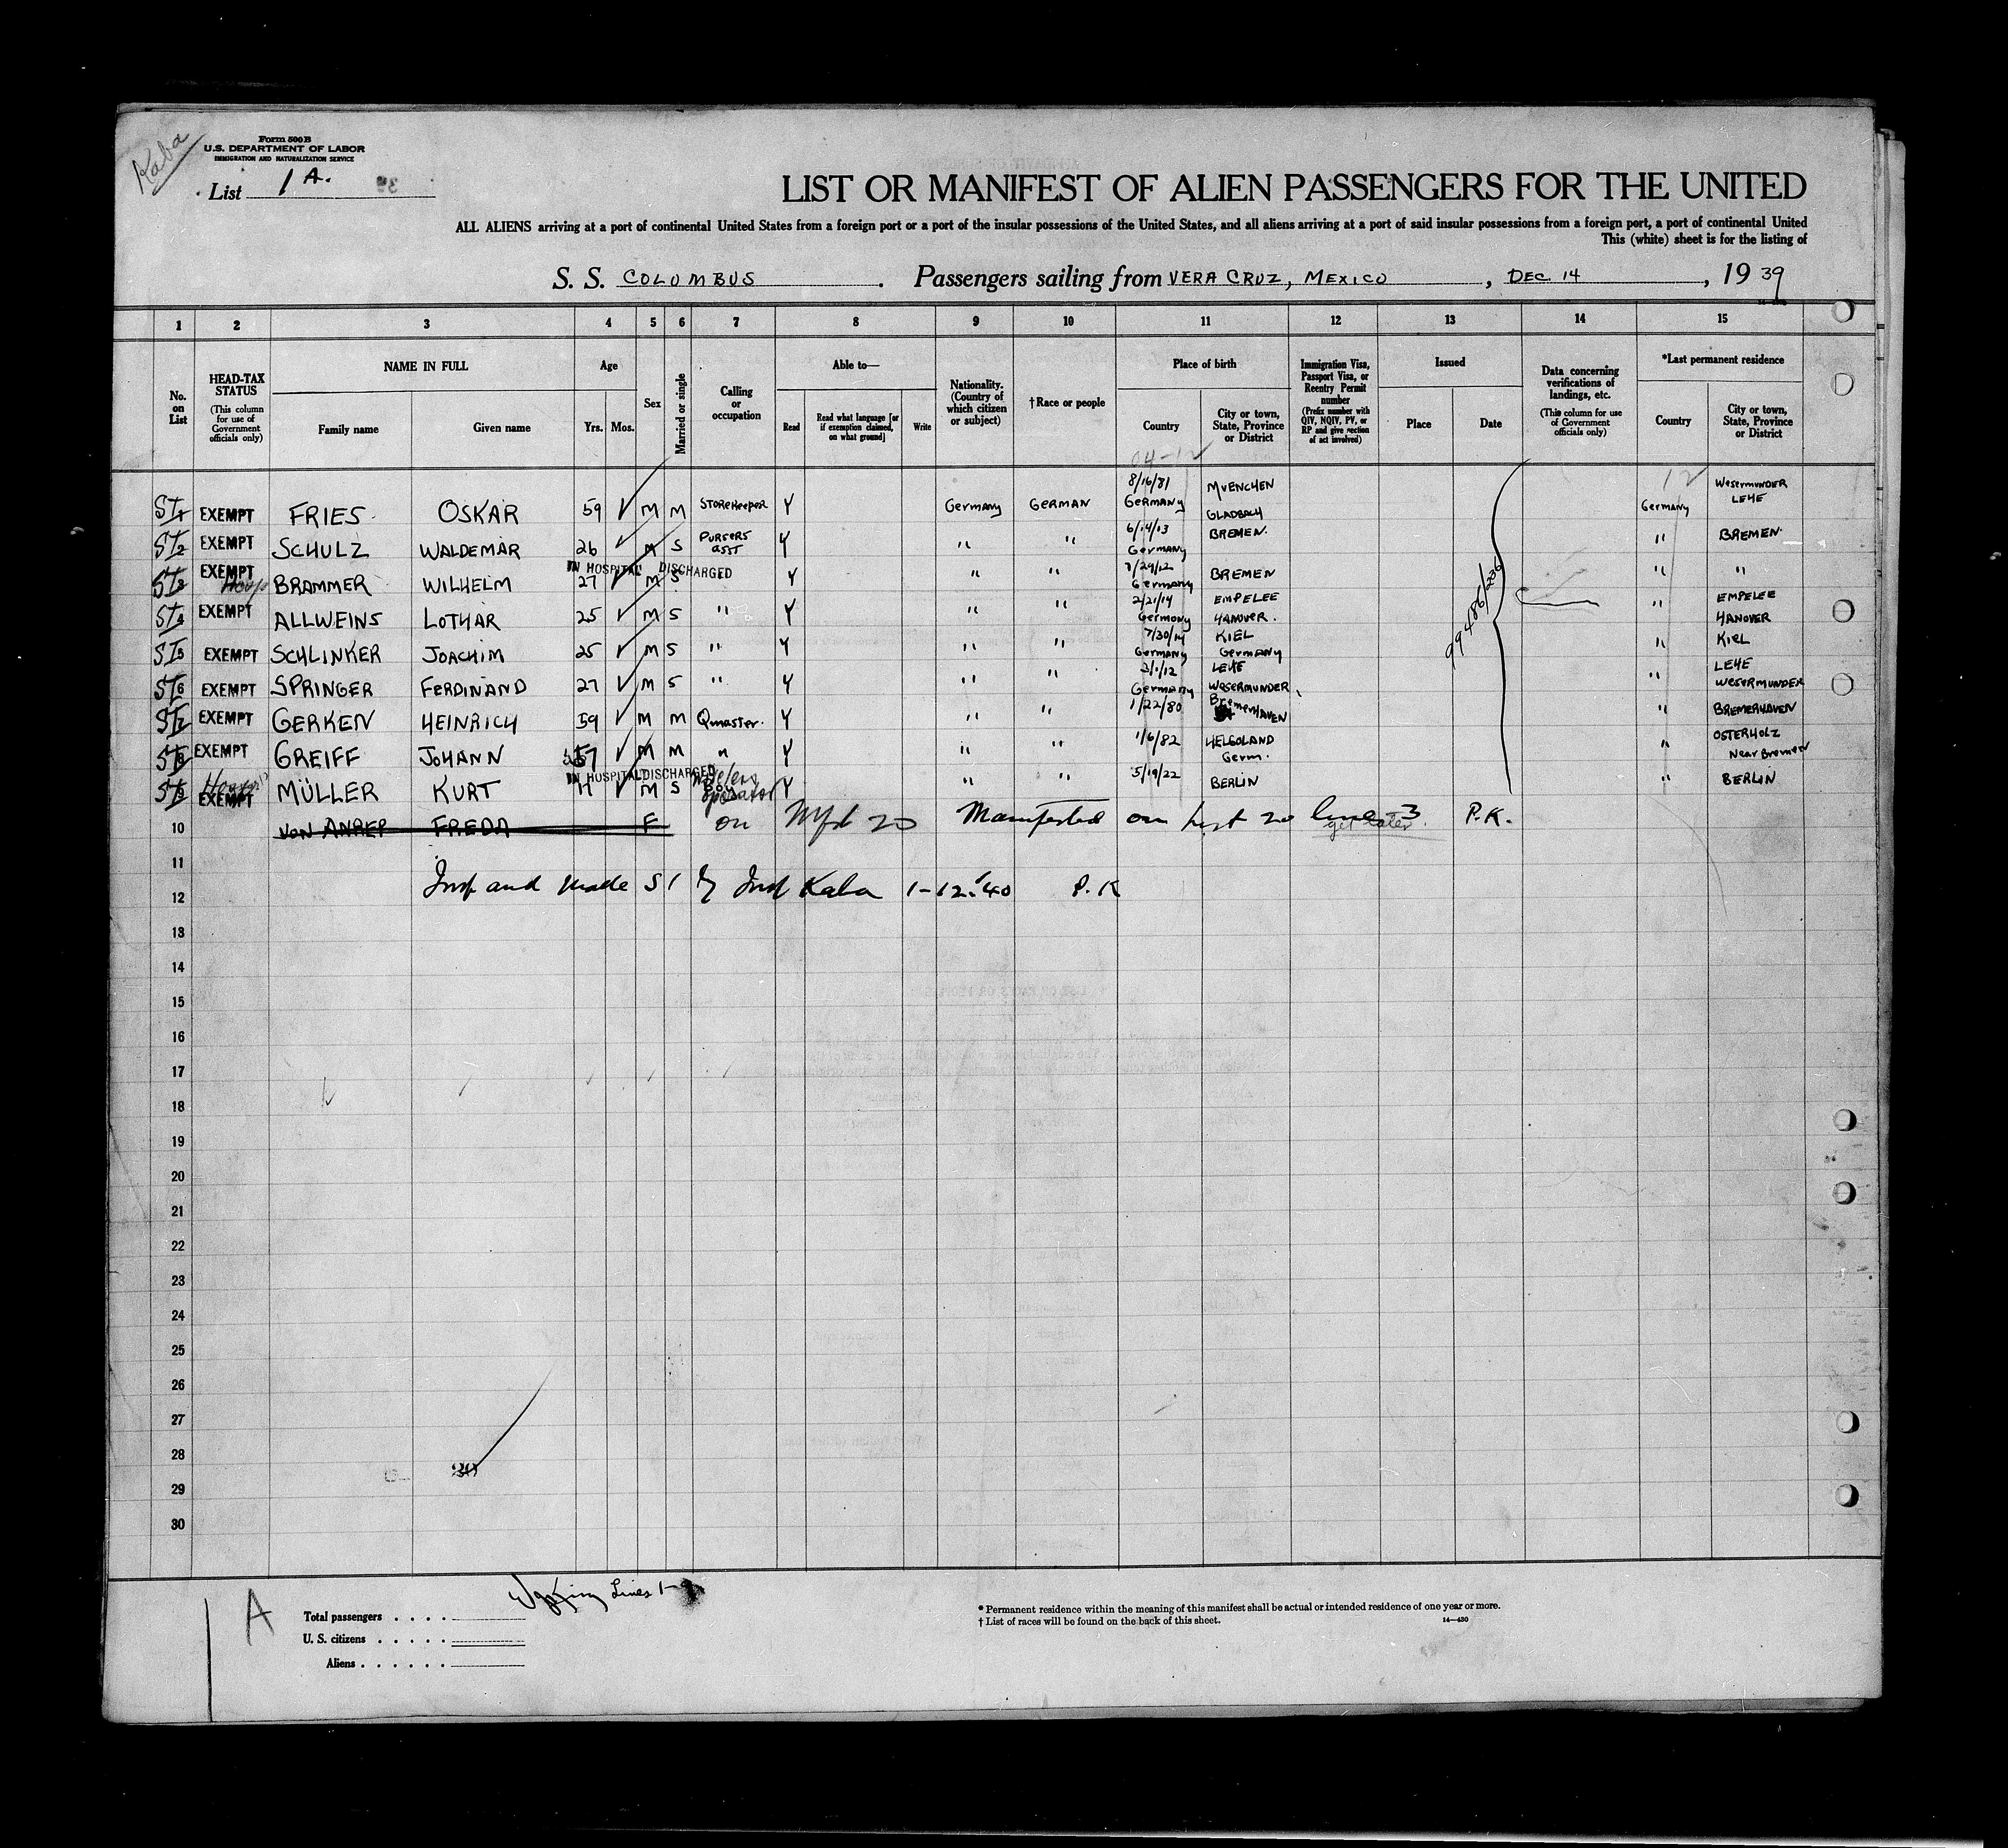 Kaba
Form 500 B
U.S. DEPARTMENT OF LABOR
IMMIGRATION AND NATURALIZATION SERVICE
List 1 A.
LIST OR MANIFEST OF ALIEN PASSENGERS FOR THE UNITED
ALL ALIENS arriving at a port of continental United States from a foreign port or a port of the insular possessions of the United States, and all aliens arriving at a port of said insular possessions from a foreign port, a port of continental United
This (white) sheet is for the listing of
S. S. COLUMBUS . Passengers sailing from VERA CRUZ, MEXICO , DEC. 14 , 19 39
1 2 3 4 5 6 7 8 9 10 11 12 13 14 15
No. on List
HEAD-TAX STATUS (This column for use of Government officials only)
NAME IN FULL Family name Given name
Age Yrs. Mos.
Sex
Married or single
Calling or occupation
Able to— Read Read what language [or if exemption claimed, on what ground] Write
Nationality. (Country of which citizen or subject)
†Race or people
Place of birth Country City or town, State, Province or District
Immigration Visa, Passport Visa, or Reentry Permit number (Prefix number with QIV, NQIV, PV, or RP and give section of act involved)
Issued Place Date
Data concerning verifications of landings, etc. (This column for use of Government officials only)
*Last permanent residence Country City or town, State, Province or District
04-12 12
SI 1 EXEMPT FRIES OSKAR 59 M M STOREKEEPER Y Germany GERMAN 8/16/81 GERMANY MUENCHEN GLADBACH Germany Wesermunder LEHE
SI 2 EXEMPT SCHULZ WALDEMAR 26 M S PURSERS ASST Y " " 6/14/13 Germany BREMEN. " BREMEN
IN HOSPITAL DISCHARGED
SI 3 EXEMPT Hosp BRAMMER WILHELM 27 M S Y " " 7/29/12 Germany BREMEN " "
SI 4 EXEMPT ALLWEINS LOTHAR 25 M S " Y " " 2/21/14 Germany EMPELEE HANOVER. " EMPELEE HANOVER
SI 5 EXEMPT SCHLINKER JOACHIM 25 M S " Y " " 7/30/14 Germany KIEL Germany " KIEL
SI 6 EXEMPT SPRINGER FERDINAND 27 M S " Y " " 2/1/12 Germany LEHE WESERMUNDER " LEHE WESERMUNDER
SI 7 EXEMPT GERKEN HEINRICH 59 M M Qmaster. Y " " 1/22/80 BremerHAVEN " BREMERHAVEN
SI 8 EXEMPT GREIFF JOHANN 57 M M " Y " " 1/6/82 HELGOLAND Germ. " OSTERHOLZ Near Bremen
IN HOSPITAL DISCHARGED
SI 9 EXEMPT MÜLLER KURT 17 M S Boy operator Y " " 5/19/22 BERLIN " BERLIN
99486/236
10 VON ANREP FREDA F on Mfst 20 Manifested on List 20 line 3 P.K.
get later
11
12 Insp and made SI by Insp Kaba 1-12-'40 P.K
13
14
15
16
17
18
19
20
21
22
23
24
25
26
27
28
29
30
A
Total passengers . . . .
U. S. citizens . . . . .
Aliens . . . . . .
Lines 1-9
* Permanent residence within the meaning of this manifest shall be actual or intended residence of one year or more.
† List of races will be found on the back of this sheet.
14—430